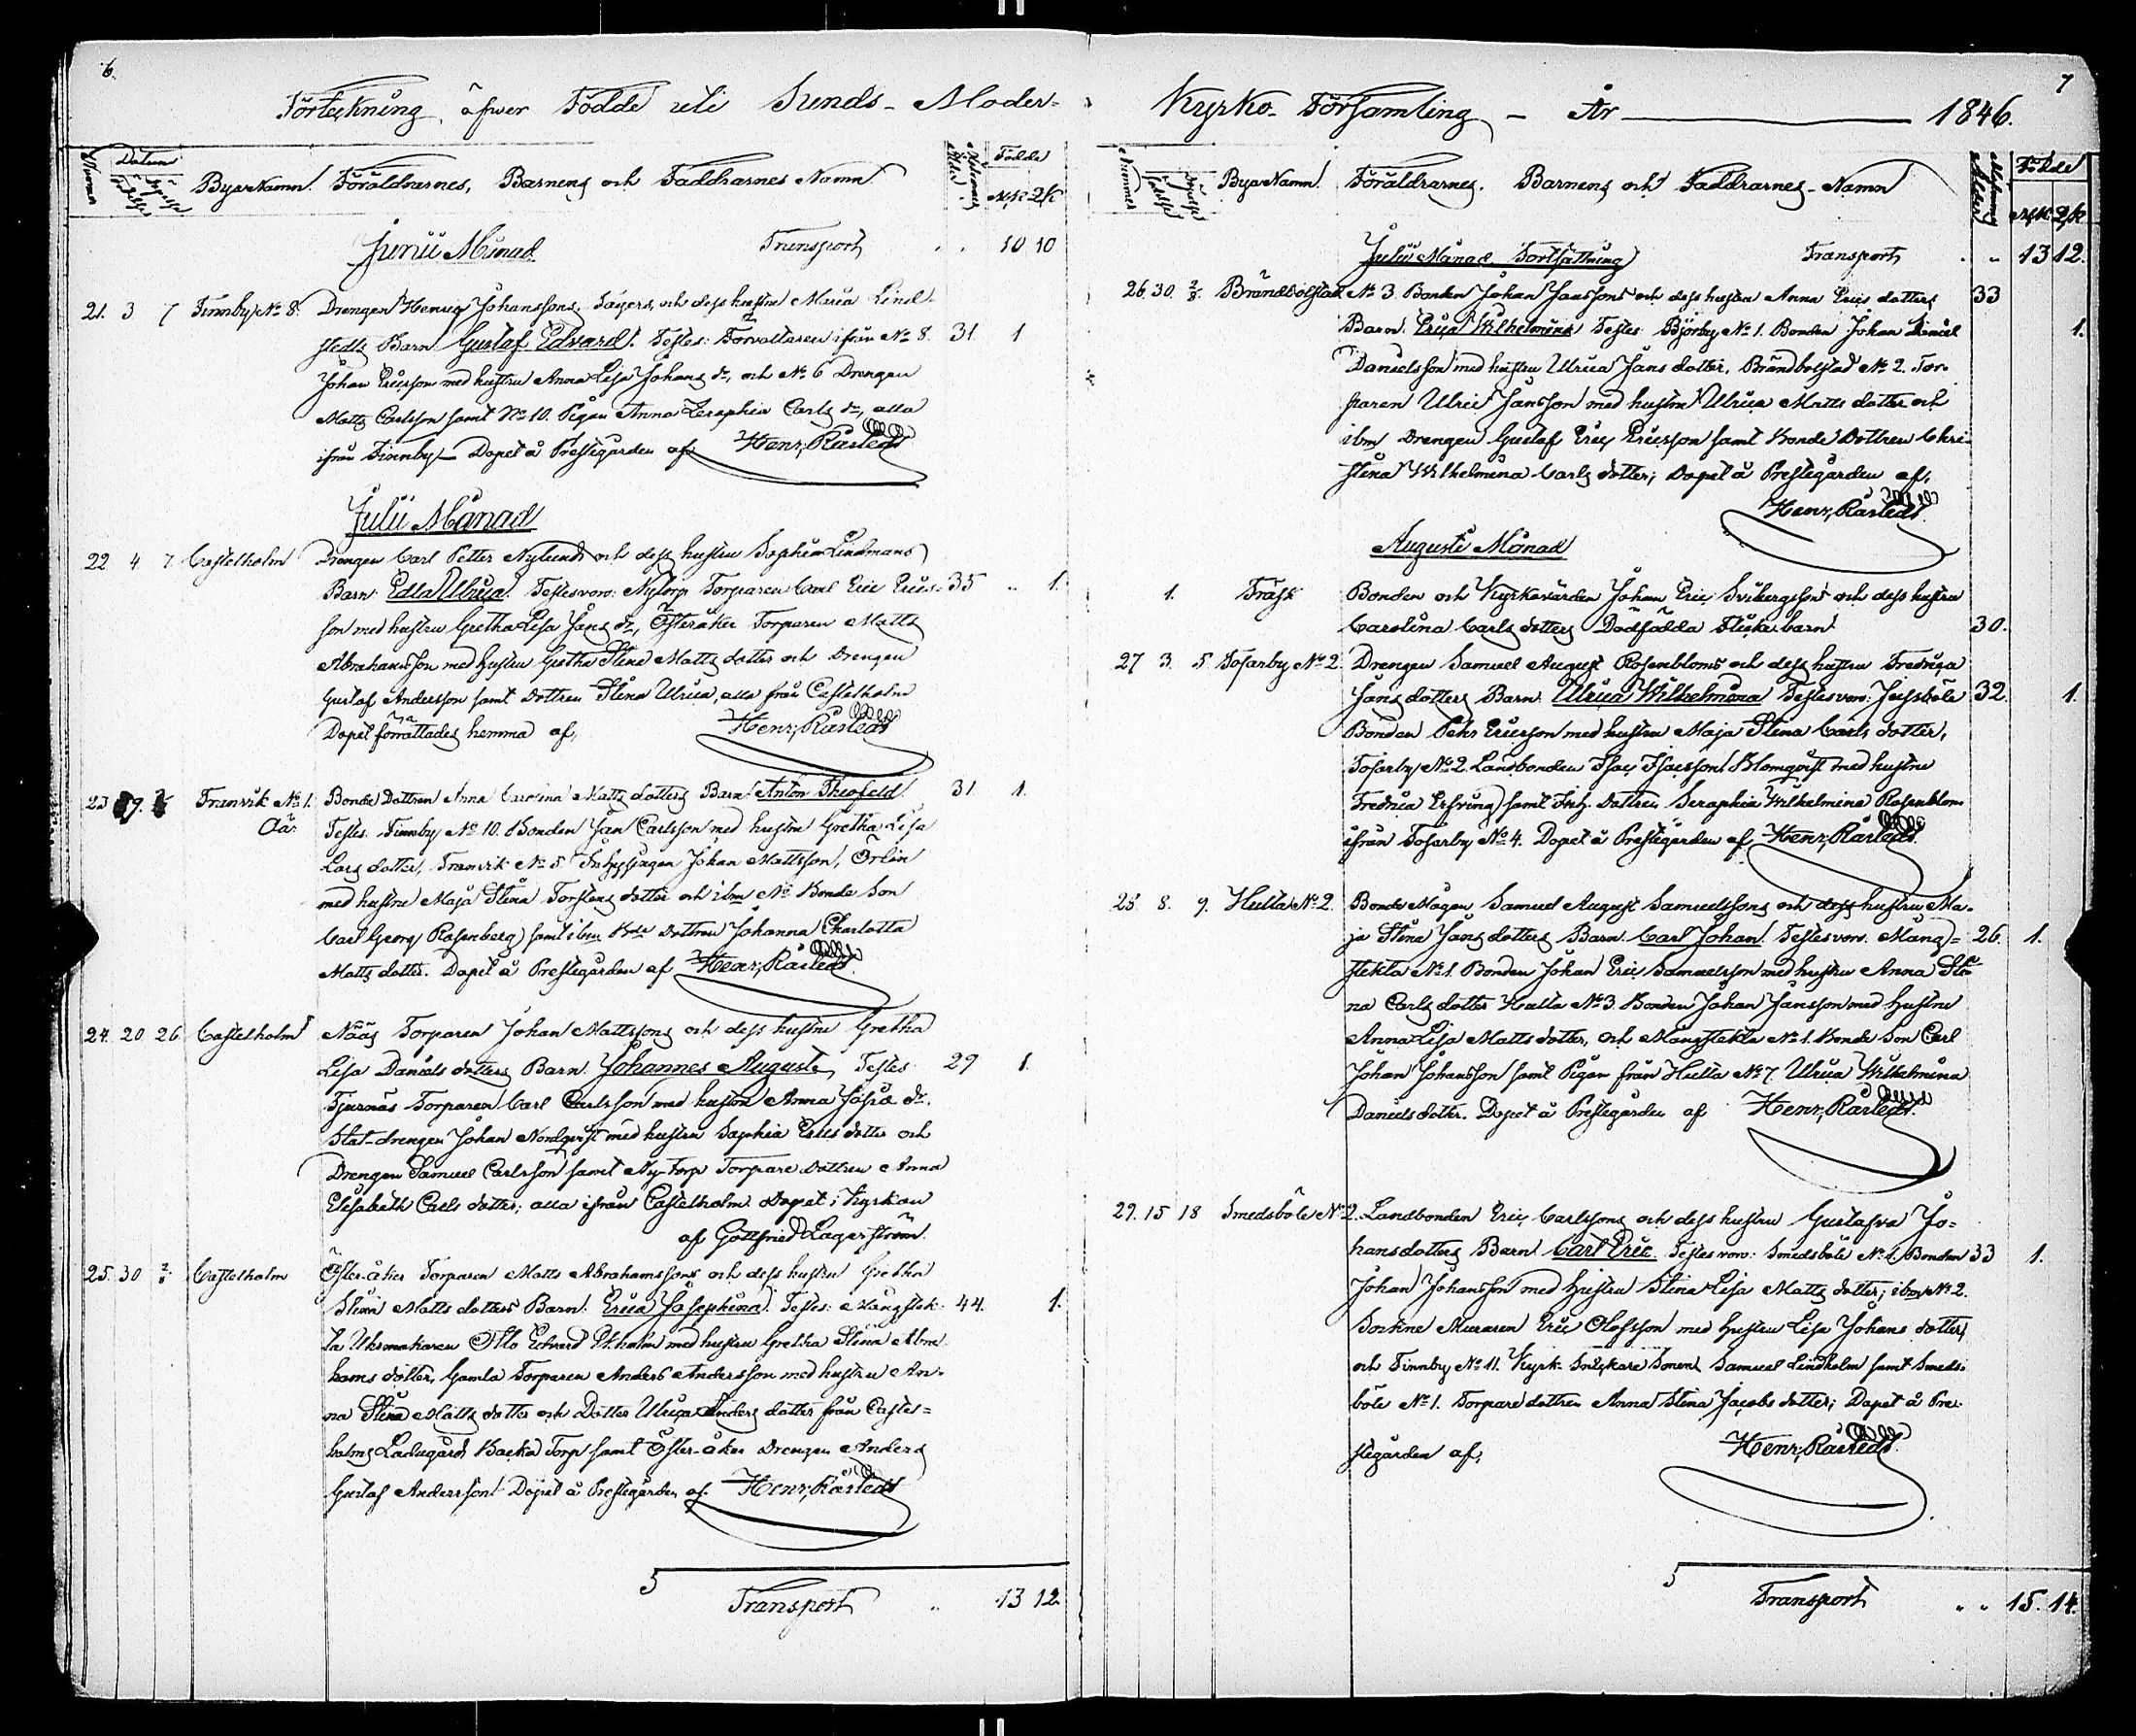 6.
Förteckning öfwer Födde uti Sunds-Moder-
Nummer Datum Födelse Byas Namn. Föräldrarnes, Barnens och Faddrarnes Namn Födde M.K. Q.K.
Junii Månad Transport 10 10
21. 3 7 Finnby No 8. Drengen Henric Johanssons, Jägers, och dess hustru Maria Lind-
stedts Barn Gustaf Edvard. Testes: Förvaltaren ifrån No 8. 31 1
Johan Ericsson med hustru Anna Lisa Johans dr, och No 6 Drengen
Matts Carlsson samt No 10. Pigan Anna Seraphia Carls dr, alla
ifrån Finnby – Döpet å Prestegården af Henr. Råstedt
Julii Månad
22 4. 7. Castelholm Drengen Carl Petter Nylunds och dess hustru Sophia Lindmans
Barn: Edla Ulrica. Testes voro: Nytorp Torparen Carl Eric Erics- 35 " 1.
son med hustru Gretha Lisa Jans dr, Österåker Torparen Matts
Abrahamsson med Hustru Gretha Stina Matts dotter och Drengen
Gustaf Andersson samt Dottren Stina Ulrica, alla från Castelholm
Döpet förrättades hemma af, Henr. Råstedt
23 9. Tranvik No 1. Bonde Dottren Anna Carolina Matts dotters Barn Anton Theofeld. 31 1.
Oä. Testes. Finnby No 10. Bonden Jan Carlsson med hustru Gretha Lisa
Lars dotter, Tranvik No 5 Johan Mattsson, Örlin
med hustru Maja Stina Torstens dotter och ibm No Bonde Son
Carl Georg Rosenberg samt ibm Bde dottren Johanna Charlotta
Matts dotter. Döpet å Prestegården af Henr. Råstedt.
24. 20 26 Castelholm Nääs Torparen Johan Mattssons och dess hustru Gretha
Lisa Daniels dotters Barn. Johannes Auguste, Testes 29 1.
Tjurnäs Torparen Carl Carlsson med hustru Anna Caisa dr.
Stat-drengen Johan Nordqvist med hustru Sophia Erics dotter och
Drengen Samuel Carlsson samt Ny-Torp Torpare Dottren Anna
Elisabeth Carls dotter; alla ifrån Castelholm. Döpet i Kyrkan
af Gottfried Lagerström.
25. 30 2/8 Castelholm Öster-åker Torparen Matts Abrahamssons och dess hustru Gretha
Stina Matts dotters Barn. Erica Josephina. Testes: Mångstek- 44. 1.
ta Urmakaren Otto Edvard Ekholm med hustru Gretha Stina Abra
hams dotter, Gamla Torparen Anders Andersson med hustru An-
na Stina Matts dotter och Dotter Ulrica Anders dotter från Castel-
holms Ladugård Backa Torp samt Öster-åker Drengen Anders
Gustaf Andersson. Döpet å Prestegården af. Henr. Råstedt
Transport " 13 12.
7
Kyrko-Församling – År 1846.
Nummer Byas Namn. Föräldrarnes, Barnens och Faddrarnes Namn Ålder Födde M.K. Q.K.
Julii Månad Fortsättning Transport " 13 12.
26. 30. 2/8. Brändbolstad No 3. Bonden Johan Janssons och dess hustru Anna Erics dotters 33
Barn. Erica Wilhelmina Testes Björby No 1. Bonden Johan Daniel 1.
Danielsson med hustru Ulrica Jans dotter, Brändbolstad No 2. Tor-
paren Ulric Jansson med hustru Ulrica Matts dotter och
ibm Drengen Gustaf Eric Ericsson samt Bonde Dottren Chri-
stina Wilhelmina Carls dotter; Döpet å Prestegården af,
Henr. Råstedt.
Augusti Månad
1. Träsk Bonden och Kyrkovärden Johan Eric Svibergsson och dess hustru
Carolina Carls dotters Dödfödda Flicke barn 30.
27 3. 5 Tosarby No 2. Drengen Samuel August Rosenbloms och dess hustru Fredrica
Jans dotters Barn. Ulrica Wilhelmina Testes voro: Jussböle 32. 1.
Bonden Pehr Ericsson med hustru Maja Stina Carls dotter,
Tosarby No 2. Landbonden Isac Isacsson Blomqvist med hustru
Fredrica samt Inh. dottren Seraphia Wilhelmina Rosenblom
ifrån Tosarby No 4. Döpet å Prestegården af Henr. Råstedt.
28. 8. 9. Hulta No 2. Bonde Mågen Samuel August Samuelssons och dess hustru Ma-
ja Stina Jans dotters Barn. Carl Johan. Testes voro. Mång- 26. 1.
stekta No 1. Bonden Johan Eric Samuelsson med hustru Anna Sti-
na Carls dotter Hulta No 3 Bonden Johan Jansson med Hustru
Anna Lisa Matts dotter, och Mångstekta No 1. Bonde Son Carl
Johan Johansson samt Pigan från Hulta No 7. Ulrica Wilhelmina
Daniels dotter. Döpet å Prestegården af Henr. Råstedt.
29. 15 18 Smedsböle No 2. Landbonden Eric Carlssons och dess hustru Gustafva Jo-
hans dotters Barn. Carl Eric. Testes voro: Smedsböle No 1. Bonden 33 1.
Johan Johansson med Hustru Stina Lisa Matts dotter; ibm No 2.
Sockne Muraren Eric Olofsson med hustru Lisa Johans dotter,
och Finnby No 11. Kyrk-Snickare Sonen Samuel Lindholm samt Smeds-
böle No 1. Torpare dottren Anna Stina Jacobs dotter; Döpet å Pre-
stegården af, Henr. Råstedt.
Transport " " 15. 14.